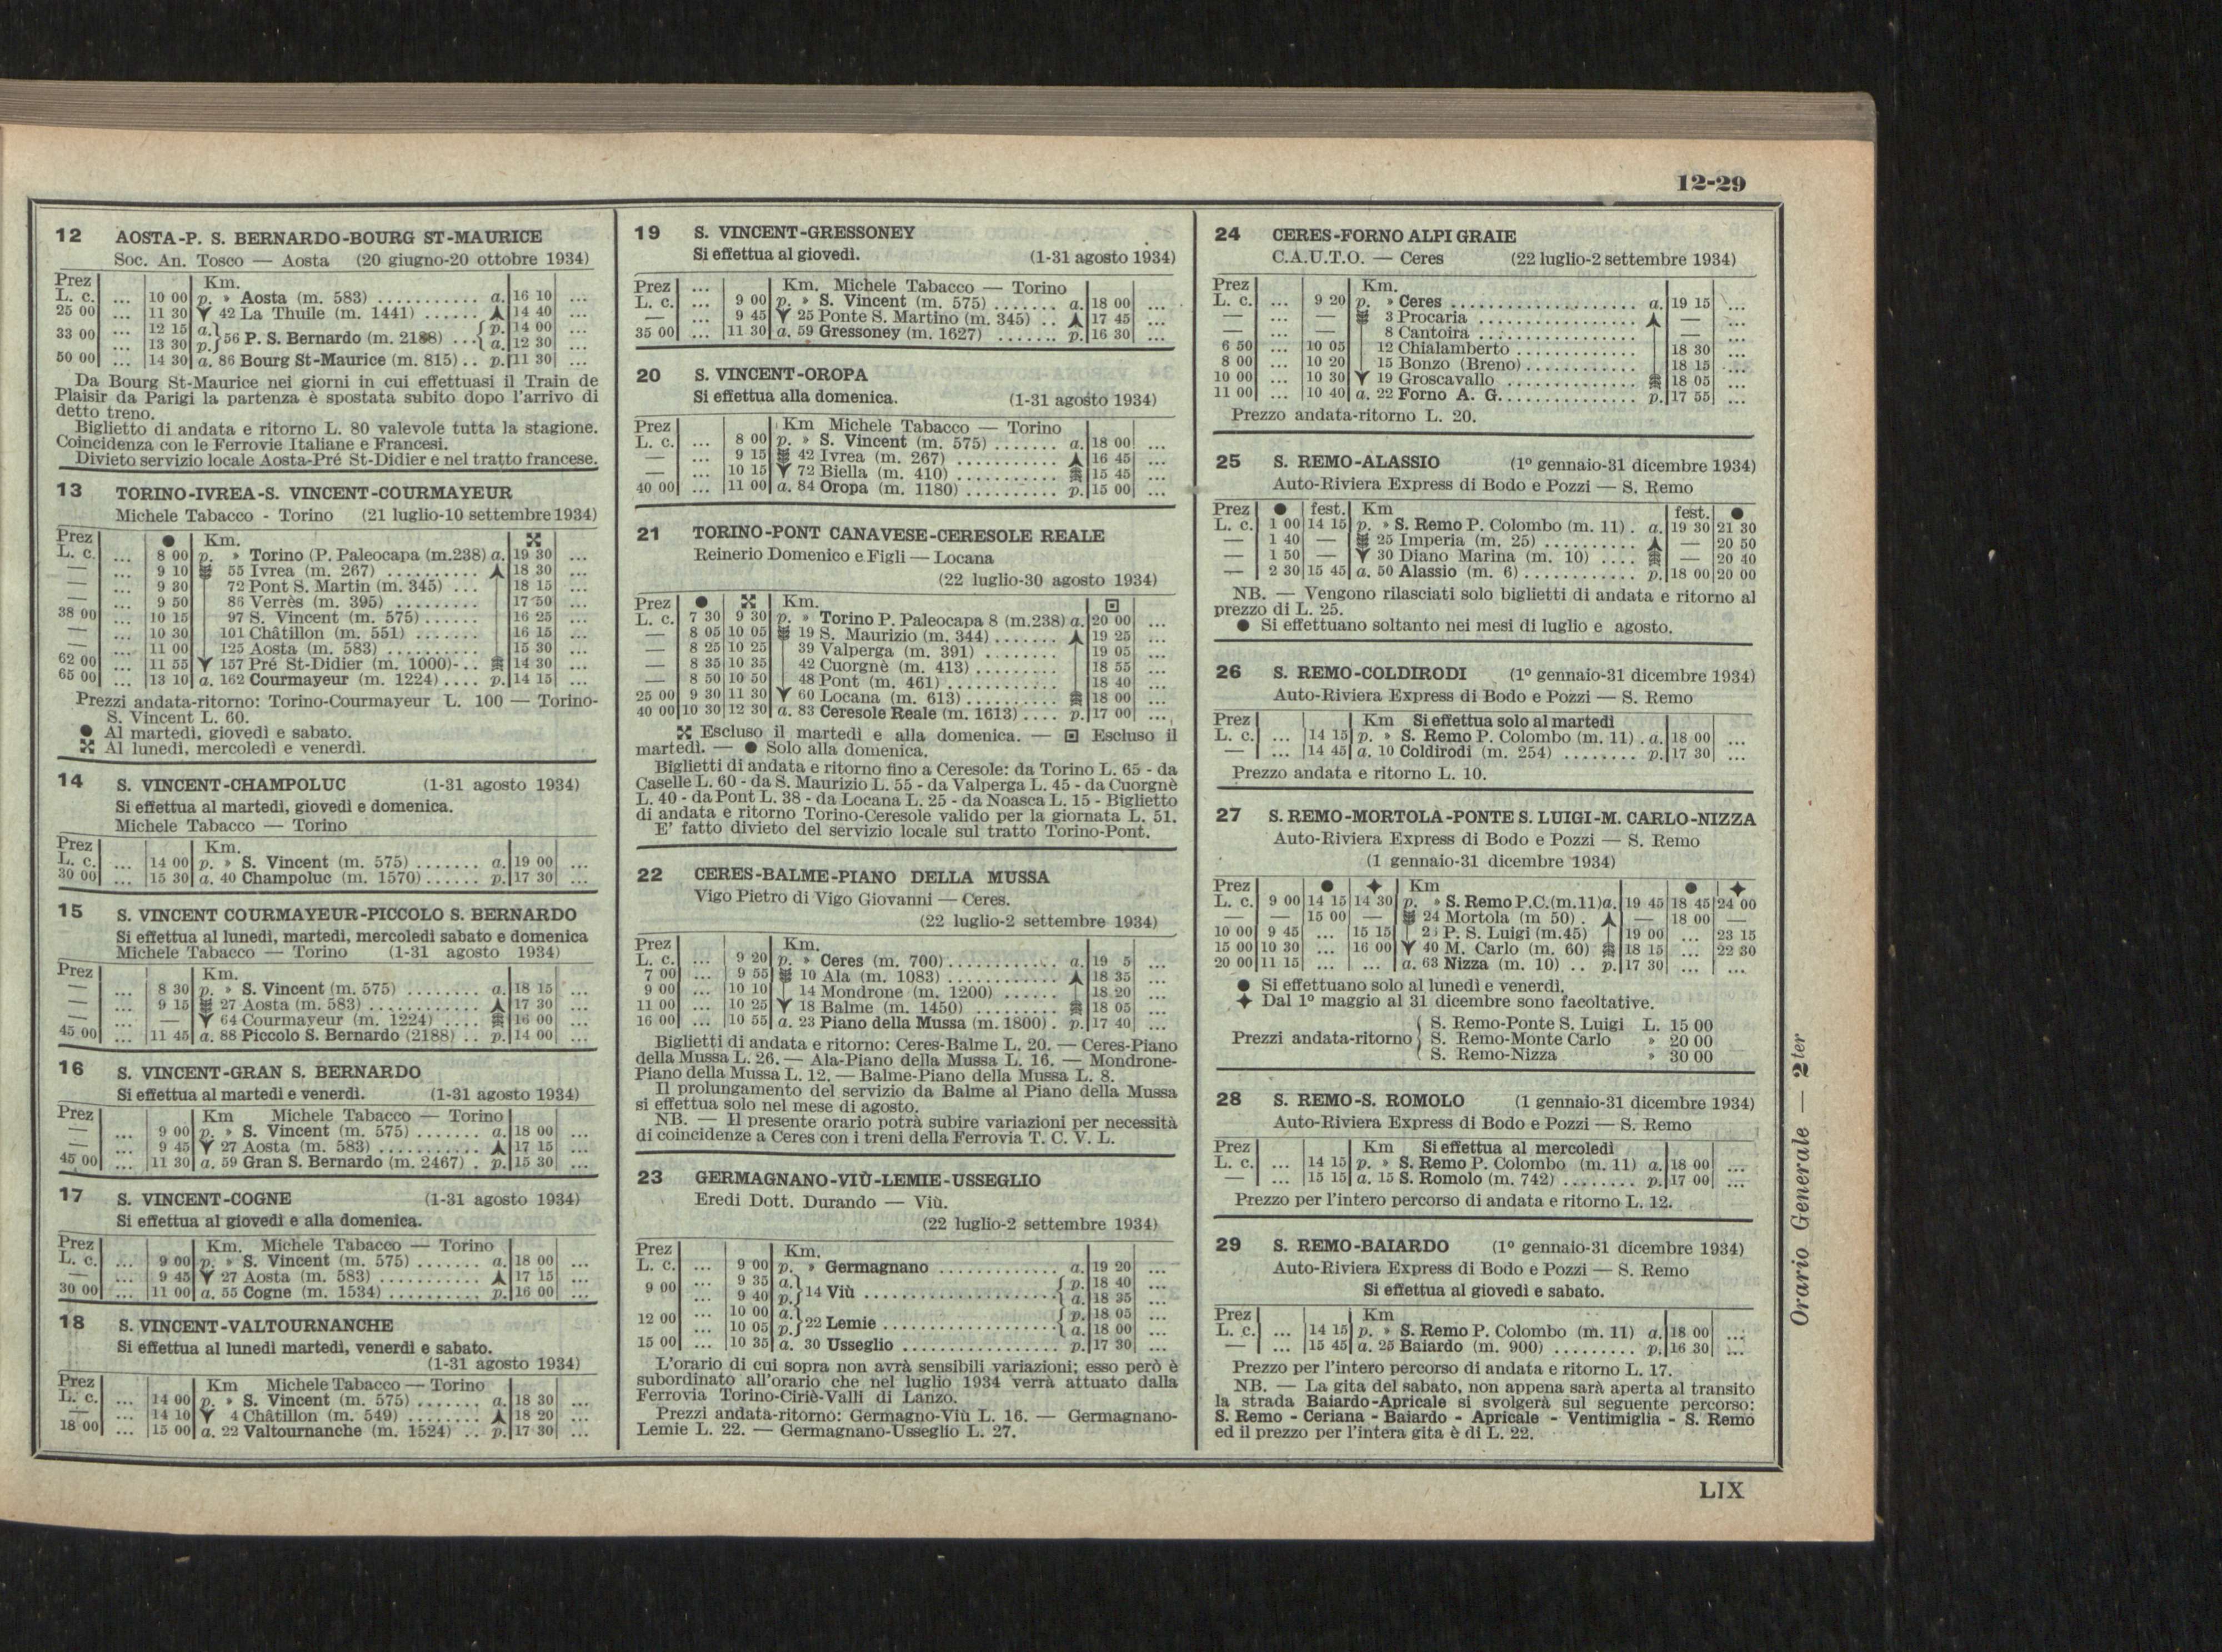 12-29
12 AOSTA-P. S. BERNARDO-BOURG ST-MAURICE
Soc. An. Tosco — Aosta (20 giugno-20 ottobre 1934)
Prez Km.
L. c. ... 10 00 p. » Aosta (m. 583) ........... a. 16 10 ...
25 00 ... 11 30 42 La Thuile (m. 1441) ...... 14 40 ...
33 00 ... 12 15 a. } 56 P. S. Bernardo (m. 2188) ... { p. 14 00 ...
... 13 30 p. a. 12 30 ...
50 00 ... 14 30 a. 86 Bourg St-Maurice (m. 815) .. p. 11 30 ...
Da Bourg St-Maurice nei giorni in cui effettuasi il Train de
Plaisir da Parigi la partenza è spostata subito dopo l'arrivo di
detto treno.
Biglietto di andata e ritorno L. 80 valevole tutta la stagione.
Coincidenza con le Ferrovie Italiane e Francesi.
Divieto servizio locale Aosta-Pré St-Didier e nel tratto francese.
13 TORINO-IVREA-S. VINCENT-COURMAYEUR
Michele Tabacco - Torino (21 luglio-10 settembre 1934)
Prez ● Km. ✠
L. c. ... 8 00 p. » Torino (P. Paleocapa (m.238) a. 19 30 ...
— ... 9 10 55 Ivrea (m. 267) .......... 18 30 ...
— ... 9 30 72 Pont S. Martin (m. 345) ... 18 15 ...
— ... 9 50 86 Verrès (m. 395) ......... 17 50 ...
38 00 ... 10 15 97 S. Vincent (m. 575) ...... 16 25 ...
— ... 10 30 101 Châtillon (m. 551) ....... 16 15 ...
— ... 11 00 125 Aosta (m. 583) .......... 15 30 ...
62 00 ... 11 55 157 Pré St-Didier (m. 1000)- .. 14 30 ...
65 00 ... 13 10 a. 162 Courmayeur (m. 1224) .... p. 14 15 ...
Prezzi andata-ritorno: Torino-Courmayeur L. 100 — Torino-
S. Vincent L. 60.
● Al martedì, giovedì e sabato.
✠ Al lunedì, mercoledì e venerdì.
14 S. VINCENT-CHAMPOLUC (1-31 agosto 1934)
Si effettua al martedì, giovedì e domenica.
Michele Tabacco — Torino
Prez Km.
L. c. ... 14 00 p. » S. Vincent (m. 575) ....... a. 19 00 ...
30 00 ... 15 30 a. 40 Champoluc (m. 1570) ...... p. 17 30 ...
15 S. VINCENT COURMAYEUR-PICCOLO S. BERNARDO
Si effettua al lunedì, martedì, mercoledì sabato e domenica
Michele Tabacco — Torino (1-31 agosto 1934)
Prez Km.
— ... 8 30 p. » S. Vincent (m. 575) ........ a. 18 15 ...
— ... 9 15 27 Aosta (m. 583) ............ 17 30 ...
— ... — 64 Courmayeur (m. 1224) .... 16 00 ...
45 00 ... 11 45 a. 88 Piccolo S. Bernardo (2188) .. p. 14 00 ...
16 S. VINCENT-GRAN S. BERNARDO
Si effettua al martedì e venerdì. (1-31 agosto 1934)
Prez Km Michele Tabacco — Torino
— ... 9 00 p. » S. Vincent (m. 575) ....... a. 18 00 ...
— ... 9 45 27 Aosta (m. 583) ........... 17 15 ...
45 00 ... 11 30 a. 59 Gran S. Bernardo (m. 2467) . p. 15 30 ...
17 S. VINCENT-COGNE (1-31 agosto 1934)
Si effettua al giovedì e alla domenica.
Prez Km. Michele Tabacco — Torino
L. c. ... 9 00 p. » S. Vincent (m. 575) ....... a. 18 00 ...
— ... 9 45 27 Aosta (m. 583) ........... 17 15 ...
30 00 ... 11 00 a. 55 Cogne (m. 1534) .......... p. 16 00 ...
18 S. VINCENT-VALTOURNANCHE
Si effettua al lunedì martedì, venerdì e sabato.
(1-31 agosto 1934)
Prez Km Michele Tabacco — Torino
L. c. ... 14 00 p. » S. Vincent (m. 575) ....... a. 18 30 ...
— ... 14 10 4 Châtillon (m. 549) ........ 18 20 ...
18 00 ... 15 00 a. 22 Valtournanche (m. 1524) .. p. 17 30 ...
19 S. VINCENT-GRESSONEY
Si effettua al giovedì. (1-31 agosto 1934)
Prez ... Km. Michele Tabacco — Torino
L. c. ... 9 00 p. » S. Vincent (m. 575) ....... a. 18 00 ...
— ... 9 45 25 Ponte S. Martino (m. 345) .. 17 45 ...
35 00 ... 11 30 a. 59 Gressoney (m. 1627) ....... p. 16 30 ...
20 S. VINCENT-OROPA
Si effettua alla domenica. (1-31 agosto 1934)
Prez Km Michele Tabacco — Torino
L. c. ... 8 00 p. » S. Vincent (m. 575) ....... a. 18 00 ...
— ... 9 15 42 Ivrea (m. 267) ........... 16 45 ...
— ... 10 15 72 Biella (m. 410) ........... 15 45 ...
40 00 ... 11 00 a. 84 Oropa (m. 1180) .......... p. 15 00 ...
21 TORINO-PONT CANAVESE-CERESOLE REALE
Reinerio Domenico e Figli — Locana
(22 luglio-30 agosto 1934)
Prez ● ✠ Km. ⊡
L. c. 7 30 9 30 p. » Torino P. Paleocapa 8 (m.238) a. 20 00 ...
— 8 05 10 05 19 S. Maurizio (m. 344) ....... 19 25 ...
— 8 25 10 25 39 Valperga (m. 391) ........ 19 05 ...
— 8 35 10 35 42 Cuorgnè (m. 413) ......... 18 55 ...
— 8 50 10 50 48 Pont (m. 461) ............ 18 40 ...
25 00 9 30 11 30 60 Locana (m. 613) .......... 18 00 ...
40 00 10 30 12 30 a. 83 Ceresole Reale (m. 1613) .... p. 17 00 ...
✠ Escluso il martedì e alla domenica. — ⊡ Escluso il
martedì. — ● Solo alla domenica.
Biglietti di andata e ritorno fino a Ceresole: da Torino L. 65 - da
Caselle L. 60 - da S. Maurizio L. 55 - da Valperga L. 45 - da Cuorgnè
L. 40 - da Pont L. 38 - da Locana L. 25 - da Noasca L. 15 - Biglietto
di andata e ritorno Torino-Ceresole valido per la giornata L. 51.
E' fatto divieto del servizio locale sul tratto Torino-Pont.
22 CERES-BALME-PIANO DELLA MUSSA
Vigo Pietro di Vigo Giovanni — Ceres.
(22 luglio-2 settembre 1934)
Prez Km.
L. c. ... 9 20 p. » Ceres (m. 700) ............ a. 19 5 ...
7 00 ... 9 55 10 Ala (m. 1083) ............ 18 35 ...
9 00 ... 10 10 14 Mondrone (m. 1200) ...... 18 20 ...
11 00 ... 10 25 18 Balme (m. 1450) ......... 18 05 ...
16 00 ... 10 55 a. 23 Piano della Mussa (m. 1800) . p. 17 40 ...
Biglietti di andata e ritorno: Ceres-Balme L. 20. — Ceres-Piano
della Mussa L. 26. — Ala-Piano della Mussa L. 16. — Mondrone-
Piano della Mussa L. 12. — Balme-Piano della Mussa L. 8.
Il prolungamento del servizio da Balme al Piano della Mussa
si effettua solo nel mese di agosto.
NB. — Il presente orario potrà subire variazioni per necessità
di coincidenze a Ceres con i treni della Ferrovia T. C. V. L.
23 GERMAGNANO-VIÙ-LEMIE-USSEGLIO
Eredi Dott. Durando — Viù.
(22 luglio-2 settembre 1934)
Prez Km.
L. c. ... 9 00 p. » Germagnano ............. a. 19 20 ...
9 00 ... 9 35 a. } 14 Viù ..................... { p. 18 40 ...
... 9 40 p. a. 18 35 ...
12 00 ... 10 00 a. } 22 Lemie ................... { p. 18 05 ...
... 10 05 p. a. 18 00 ...
15 00 ... 10 35 a. 30 Usseglio ................. p. 17 30 ...
L'orario di cui sopra non avrà sensibili variazioni; esso però è
subordinato all'orario che nel luglio 1934 verrà attuato dalla
Ferrovia Torino-Ciriè-Valli di Lanzo.
Prezzi andata-ritorno: Germagno-Viù L. 16. — Germagnano-
Lemie L. 22. — Germagnano-Usseglio L. 27.
24 CERES-FORNO ALPI GRAIE
C.A.U.T.O. — Ceres (22 luglio-2 settembre 1934)
Prez Km.
L. c. ... 9 20 p. » Ceres .................... a. 19 15 ...
— ... — 3 Procaria ................. — ...
— ... — 8 Cantoira ................. — ...
6 50 ... 10 05 12 Chialamberto ............. 18 30 ...
8 00 ... 10 20 15 Bonzo (Breno) ............. 18 15 ...
10 00 ... 10 30 19 Groscavallo .............. 18 05 ...
11 00 ... 10 40 a. 22 Forno A. G. .............. p. 17 55 ...
Prezzo andata-ritorno L. 20.
25 S. REMO-ALASSIO (1º gennaio-31 dicembre 1934)
Auto-Riviera Express di Bodo e Pozzi — S. Remo
Prez ● fest. Km fest. ●
L. c. 1 00 14 15 p. » S. Remo P. Colombo (m. 11) . a. 19 30 21 30
— 1 40 — 25 Imperia (m. 25) .......... — 20 50
— 1 50 — 30 Diano Marina (m. 10) .... — 20 40
— 2 30 15 45 a. 50 Alassio (m. 6) ............ p. 18 00 20 00
NB. — Vengono rilasciati solo biglietti di andata e ritorno al
prezzo di L. 25.
● Si effettuano soltanto nei mesi di luglio e agosto.
26 S. REMO-COLDIRODI (1º gennaio-31 dicembre 1934)
Auto-Riviera Express di Bodo e Pozzi — S. Remo
Prez Km Si effettua solo al martedì
L. c. ... 14 15 p. » S. Remo P. Colombo (m. 11) . a. 18 00 ...
— ... 14 45 a. 10 Coldirodi (m. 254) ........ p. 17 30 ...
Prezzo andata e ritorno L. 10.
27 S. REMO-MORTOLA-PONTE S. LUIGI-M. CARLO-NIZZA
Auto-Riviera Express di Bodo e Pozzi — S. Remo
(1 gennaio-31 dicembre 1934)
Prez ● ✦ Km ● ✦
L. c. 9 00 14 15 14 30 p. » S. Remo P.C.(m.11) a. 19 45 18 45 24 00
— — 15 00 — 24 Mortola (m 50) . — 18 00 —
10 00 9 45 ... 15 15 P. S. Luigi (m.45) 19 00 ... 23 15
15 00 10 30 ... 16 00 40 M. Carlo (m. 60) 18 15 ... 22 30
20 00 11 15 ... ... a. 63 Nizza (m. 10) .. p. 17 30 ... ...
● Si effettuano solo al lunedì e venerdì.
✦ Dal 1º maggio al 31 dicembre sono facoltative.
Prezzi andata-ritorno { S. Remo-Ponte S. Luigi L. 15 00
S. Remo-Monte Carlo » 20 00
S. Remo-Nizza » 30 00
28 S. REMO-S. ROMOLO (1 gennaio-31 dicembre 1934)
Auto-Riviera Express di Bodo e Pozzi — S. Remo
Prez Km Si effettua al mercoledì
L. c. ... 14 15 p. » S. Remo P. Colombo (m. 11) a. 18 00 ...
— ... 15 15 a. 15 S. Romolo (m. 742) ........ p. 17 00 ...
Prezzo per l'intero percorso di andata e ritorno L. 12.
29 S. REMO-BAIARDO (1º gennaio-31 dicembre 1934)
Auto-Riviera Express di Bodo e Pozzi — S. Remo
Si effettua al giovedì e sabato.
Prez Km
L. c. ... 14 15 p. » S. Remo P. Colombo (m. 11) a. 18 00 ...
— ... 15 45 a. 25 Baiardo (m. 900) ......... p. 16 30 ...
Prezzo per l'intero percorso di andata e ritorno L. 17.
NB. — La gita del sabato, non appena sarà aperta al transito
la strada Baiardo-Apricale si svolgerà sul seguente percorso:
S. Remo - Ceriana - Baiardo - Apricale - Ventimiglia - S. Remo
ed il prezzo per l'intera gita è di L. 22.
Orario Generale — 2ter
LIX